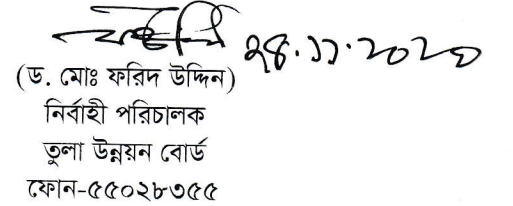 ২৪.১১.২০২০
(ড. মোঃ ফরিদ উদ্দিন)
নির্বাহী পরিচালক
তুলা উন্নয়ন বোর্ড
ফোন-৫৫০২৮৩৫৫